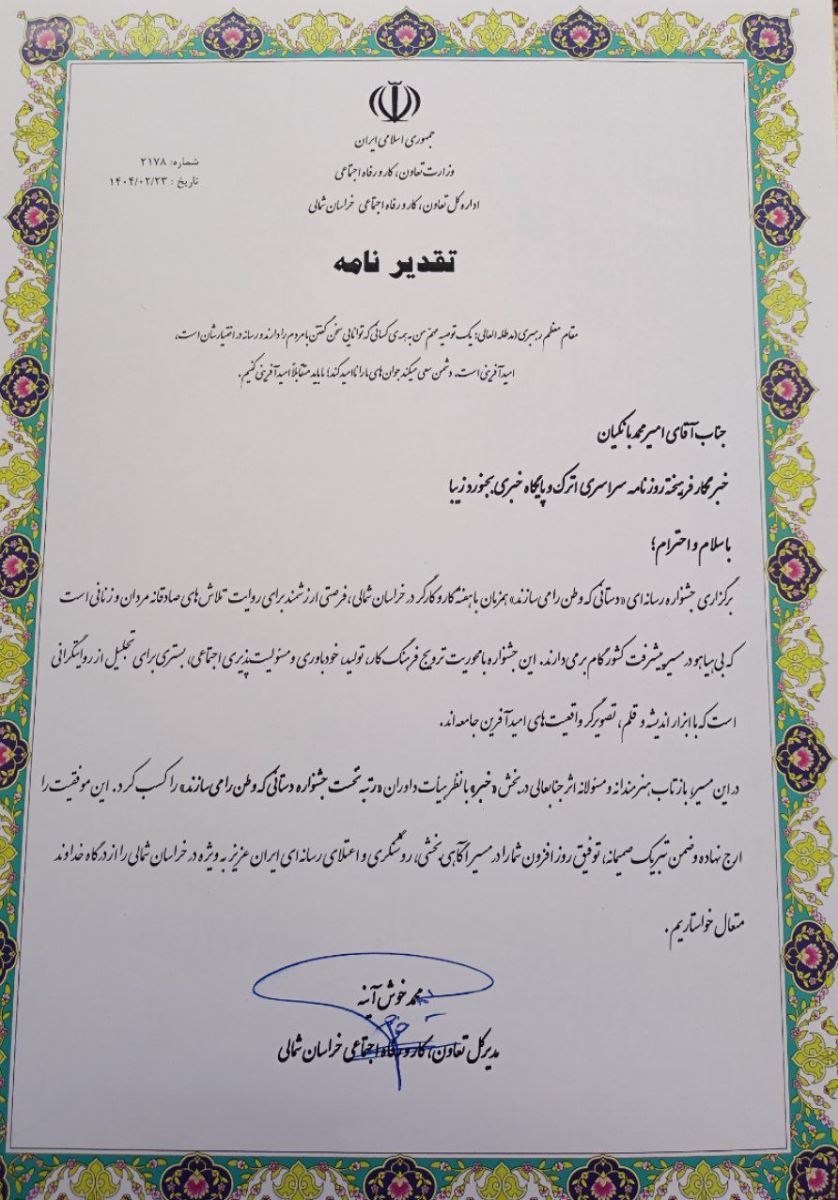 جمهوری اسلامی ایران
وزارت تعاون، کار و رفاه اجتماعی
اداره کل تعاون، کار و رفاه اجتماعی خراسان شمالی
شماره: ۲۱۷۸
تاریخ : ۱۴۰۴/۰۲/۲۳
تقدیر نامه
مقام معظم رهبری (مدظله العالی): یک توصیه مهم من به همه ی کسانی که توانایی سخن گفتن با مردم را دارند و رسانه در اختیارشان است،
امیدآفرینی است. دشمن سعی میکند جوان های ما را ناامید کند؛ ما باید متقابلاً امیدآفرینی کنیم.
جناب آقای امیرمحمد بانکیان
خبرنگار فرهیخته روزنامه سراسری اترک و پایگاه خبری بجنورد زیبا
با سلام و احترام؛
برگزاری جشنواره رسانه ای «دستانی که وطن را می سازند» همزمان با هفته کار و کارگر در خراسان شمالی، فرصتی ارزشمند برای روایت تلاش های صادقانه مردان و زنانی است
که بی هیاهو در مسیر پیشرفت کشور گام بر می دارند. این جشنواره با محوریت ترویج فرهنگ کار، تولید، خودباوری و مسئولیت پذیری اجتماعی، بستری برای تجلیل از روایتگرانی
است که با ابزار اندیشه و قلم، تصویرگر واقعیت های امیدآفرین جامعه اند.
در این مسیر، بازتاب هنرمندانه و مسئولانه اثر جنابعالی در بخش «خبر» با نظر هیأت داوران «رتبه نخست جشنواره دستانی که وطن را می سازند» را کسب کرد. این موفقیت را
ارج نهاده و ضمن تبریک صمیمانه، توفیق روز افزون شما را در مسیر آگاهی بخشی، روشنگری و اعتلای رسانه ای ایران عزیز به ویژه در خراسان شمالی را از درگاه خداوند
متعال خواستاریم.
محمد خوش آینه
مدیرکل تعاون، کار و رفاه اجتماعی خراسان شمالی